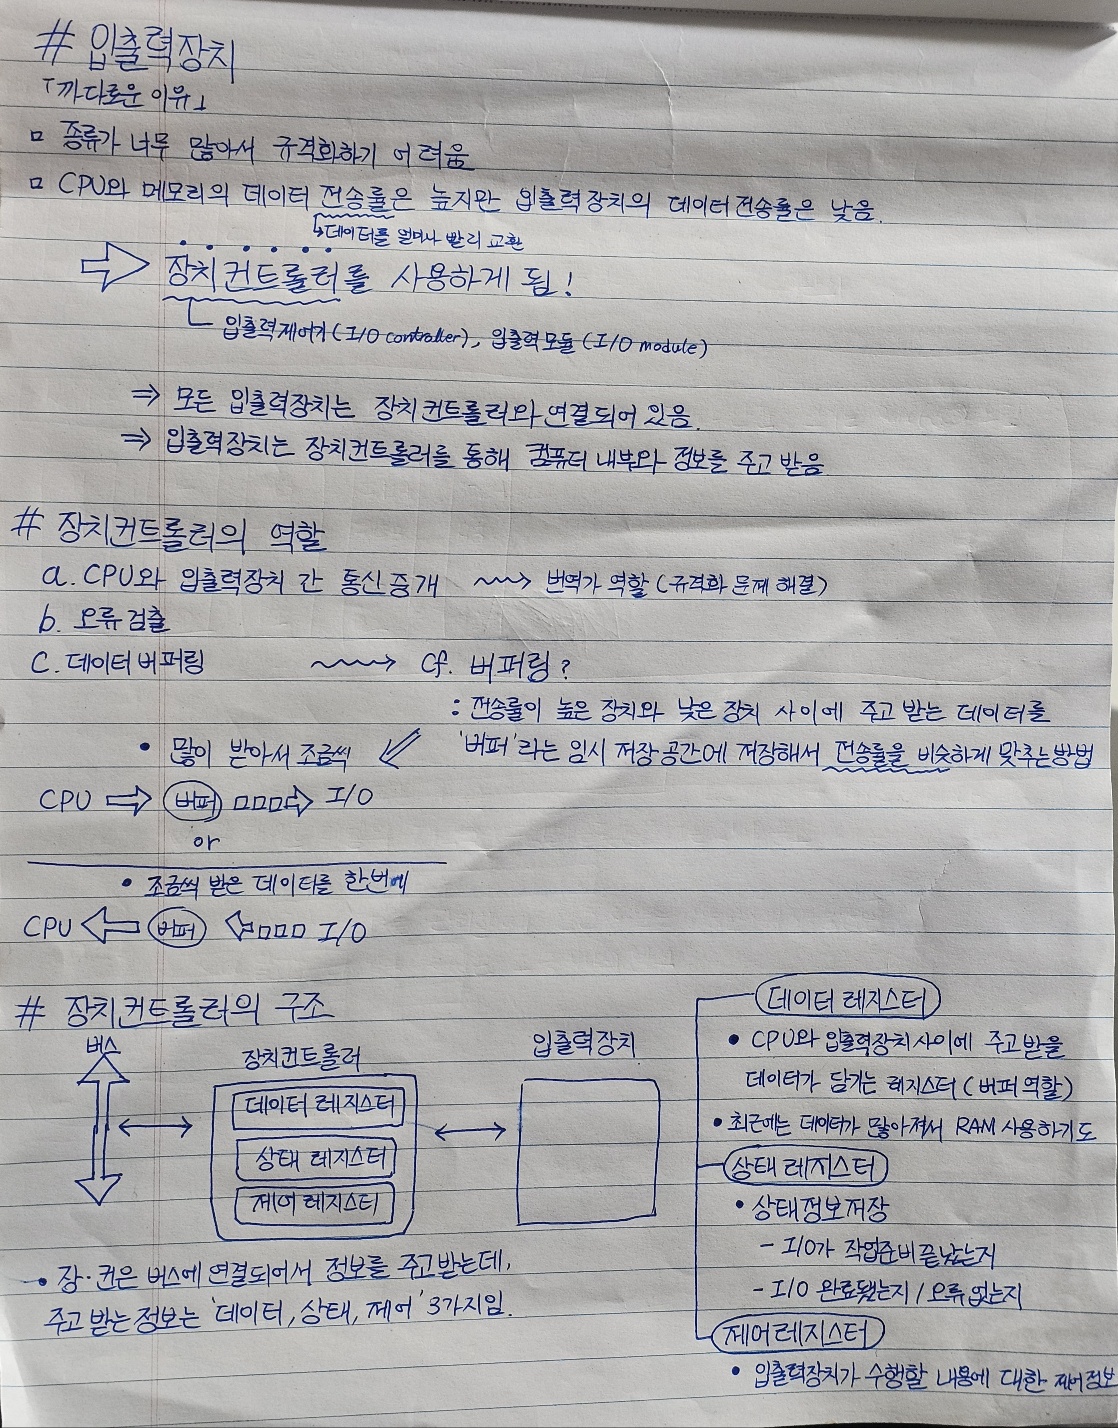 # 입출력장치
「까다로운 이유」
▫ 종류가 너무 많아서 규격화하기 어려움
▫ CPU와 메모리의 데이터 전송률은 높지만 입출력장치의 데이터 전송률은 낮음.
↳데이터를 얼마나 빨리 교환
⇨ 장치컨트롤러를 사용하게 됨!
입출력제어기(I/O controller), 입출력모듈(I/O module)
⇒ 모든 입출력장치는 장치컨트롤러와 연결되어 있음.
⇒ 입출력장치는 장치컨트롤러를 통해 컴퓨터 내부와 정보를 주고 받음
# 장치컨트롤러의 역할
a. CPU와 입출력장치 간 통신중개 ⟿ 번역가 역할(규격화 문제 해결)
b. 오류검출
c. 데이터버퍼링 ⟿ cf. 버퍼링?
: 전송률이 높은 장치와 낮은 장치 사이에 주고 받는 데이터를
'버퍼'라는 임시 저장공간에 저장해서 전송률을 비슷하게 맞추는방법
• 많이 받아서 조금씩
CPU ⇨ 버퍼 □□□⇨ I/O
or
• 조금씩 받은 데이터를 한번에
CPU ⇦ 버퍼 ⇦□□□ I/O
# 장치컨트롤러의 구조
버스
장치컨트롤러
입출력장치
데이터 레지스터
상태 레지스터
제어 레지스터
• 장·컨은 버스에 연결되어서 정보를 주고받는데,
주고 받는 정보는 '데이터, 상태, 제어' 3가지임.
데이터 레지스터
• CPU와 입출력장치 사이에 주고받을
데이터가 담기는 레지스터(버퍼역할)
• 최근에는 데이터가 많아져서 RAM 사용하기도
상태 레지스터
• 상태정보저장
- I/O가 작업준비끝났는지
- I/O 완료됐는지 / 오류없는지
제어레지스터
• 입출력장치가 수행할 내용에 대한 제어정보